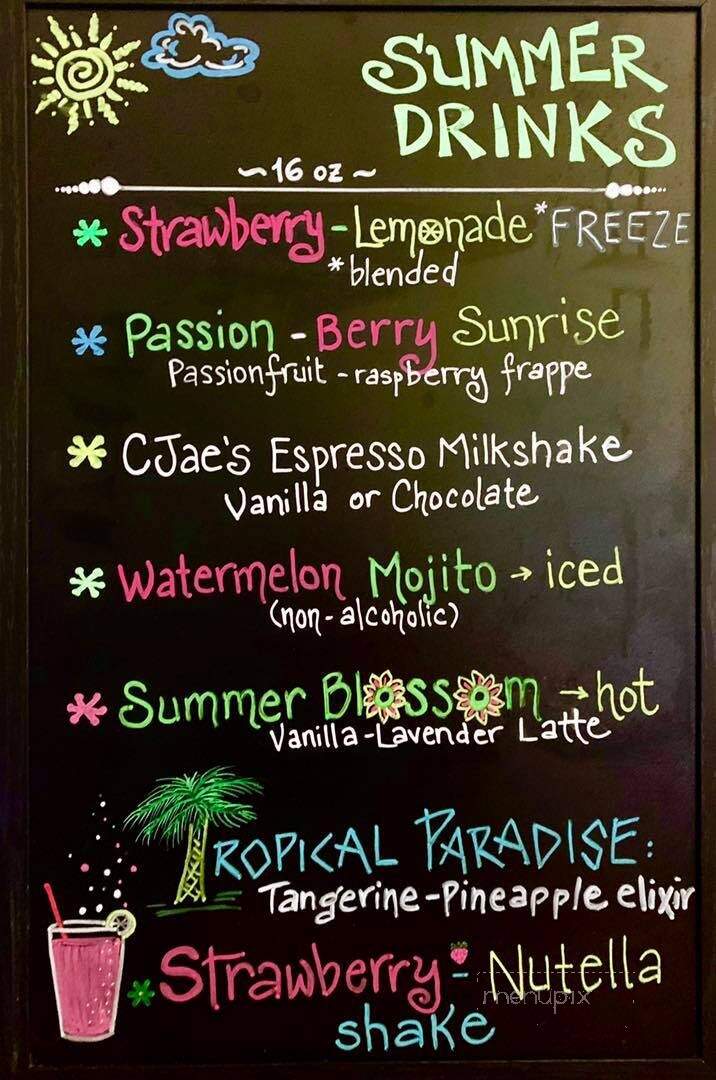 SUMMER
DRINKS
~16 oz~
* Strawberry-Lemonade *FREEZE
*blended
* Passion-Berry Sunrise
Passionfruit-raspberry frappe
* CJae's Espresso Milkshake
Vanilla or Chocolate
* Watermelon Mojito → iced
(non-alcoholic)
* Summer Blossom → hot
Vanilla-Lavender Latte
TROPICAL PARADISE:
Tangerine-Pineapple elixir
* Strawberry-Nutella
menupix
shake